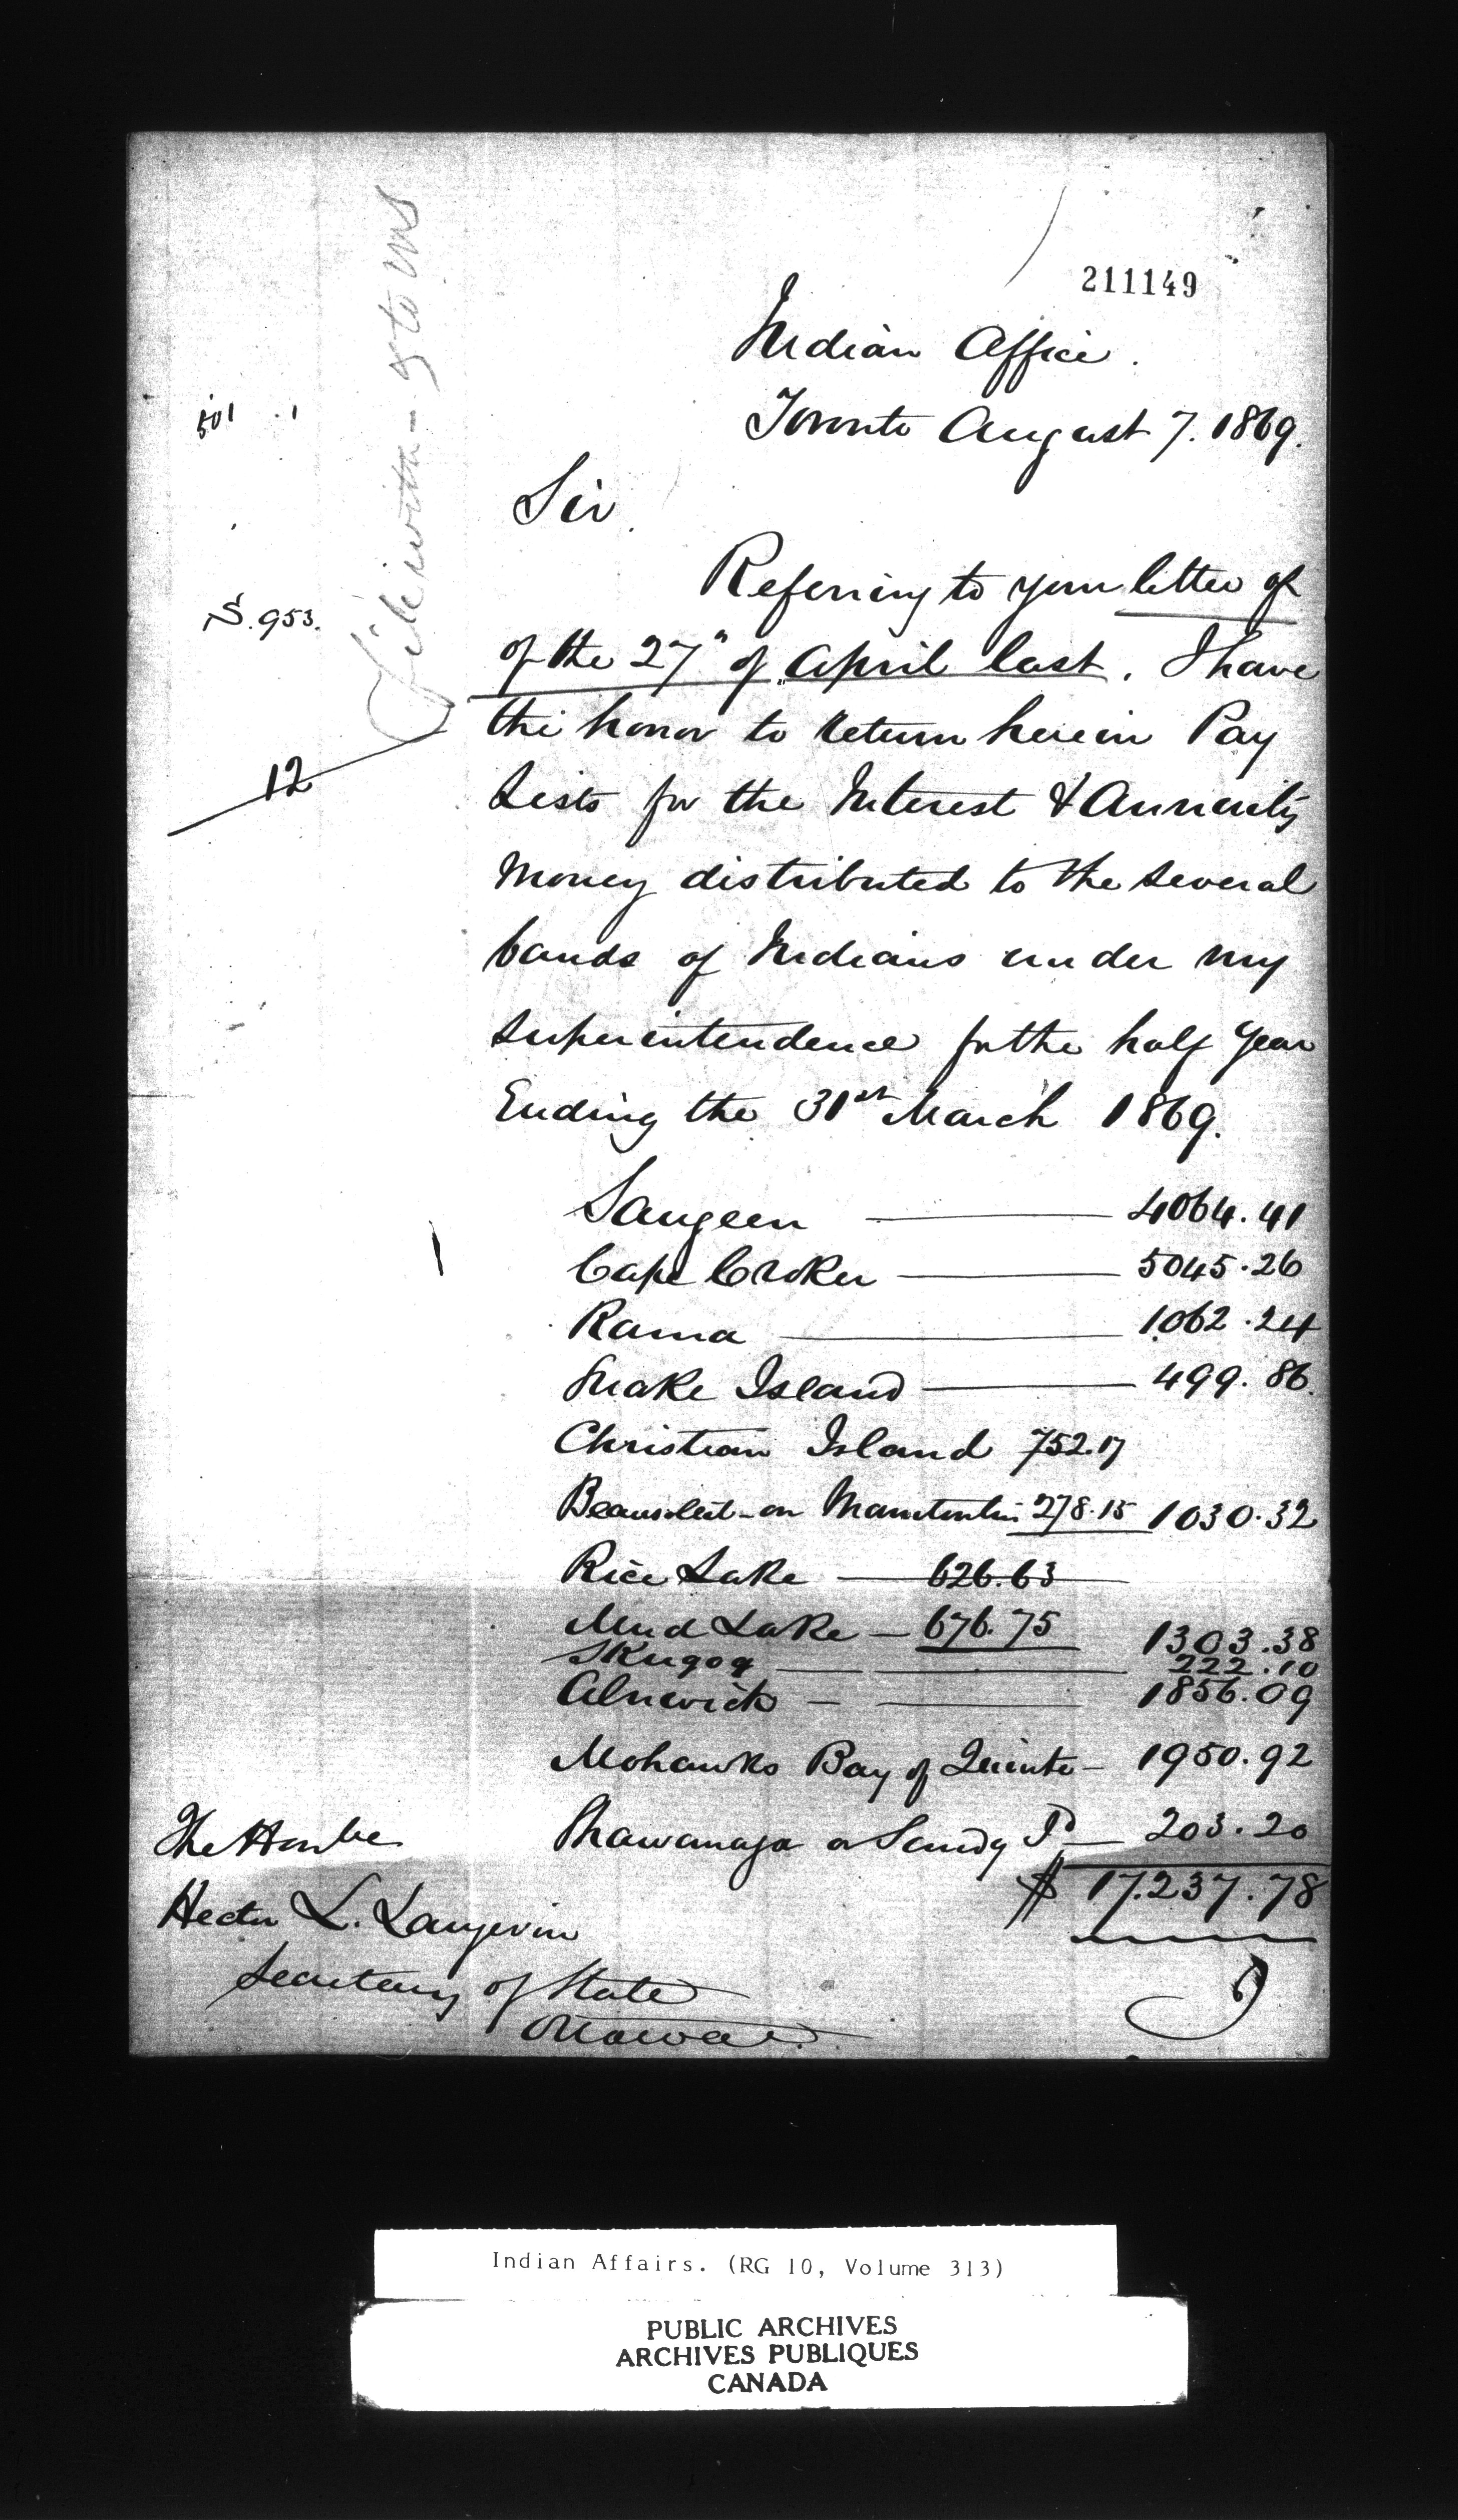 211149
Indian Office.
Toronto August 7. 1869.
501 . 1
Sir.
Referring to your letter of
S. 953.
of the 27" of April last. I have
the honor to return herein Pay
12
Lists for the Interest & Annuity
Money distributed to the several
bands of Indians under my
Superintendence for the half Year
Ending the 31st March 1869.
Saugeen — 4064.41
Cape Croker — 5045.26
Rama — 1062.24
Snake Island — 499.86.
Christian Island 752.17
Beausoleil on Manitoulin 278.15 1030.32
Rice Lake — 626.63
Mud Lake — 676.75 1303.38
Skugog — 222.10
Alnwick — 1856.09
Mohawks Bay of Quinte — 1950.92
Shawanaga or Sandy Id — 203.20
$ 17.237.78
The Honble
Hector L. Langevin
Secretary of State
Ottawa.
File with
Indian Affairs. (RG 10, Volume 313)
PUBLIC ARCHIVES
ARCHIVES PUBLIQUES
CANADA